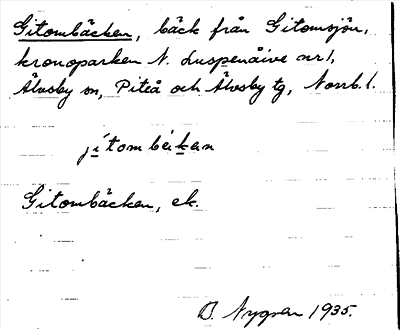 Gitombäcken, bäck från Gitomsjön,
kronoparken N. Suspenåive nr 1,
Älvsby sn, Piteå och Älvsby tg, Norrb. l.
jítom bèkan
Gitombäcken, ek.
B. Nygren 1935.